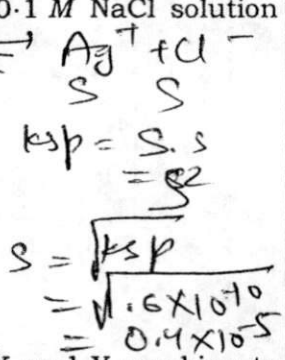 0·1 M NaCl solution
→ Ag⁺ + Cl⁻
S S
ksp = S. s
= S²
S = √ksp
= √1.6×10⁻¹⁰
= 0.4×10⁻⁵